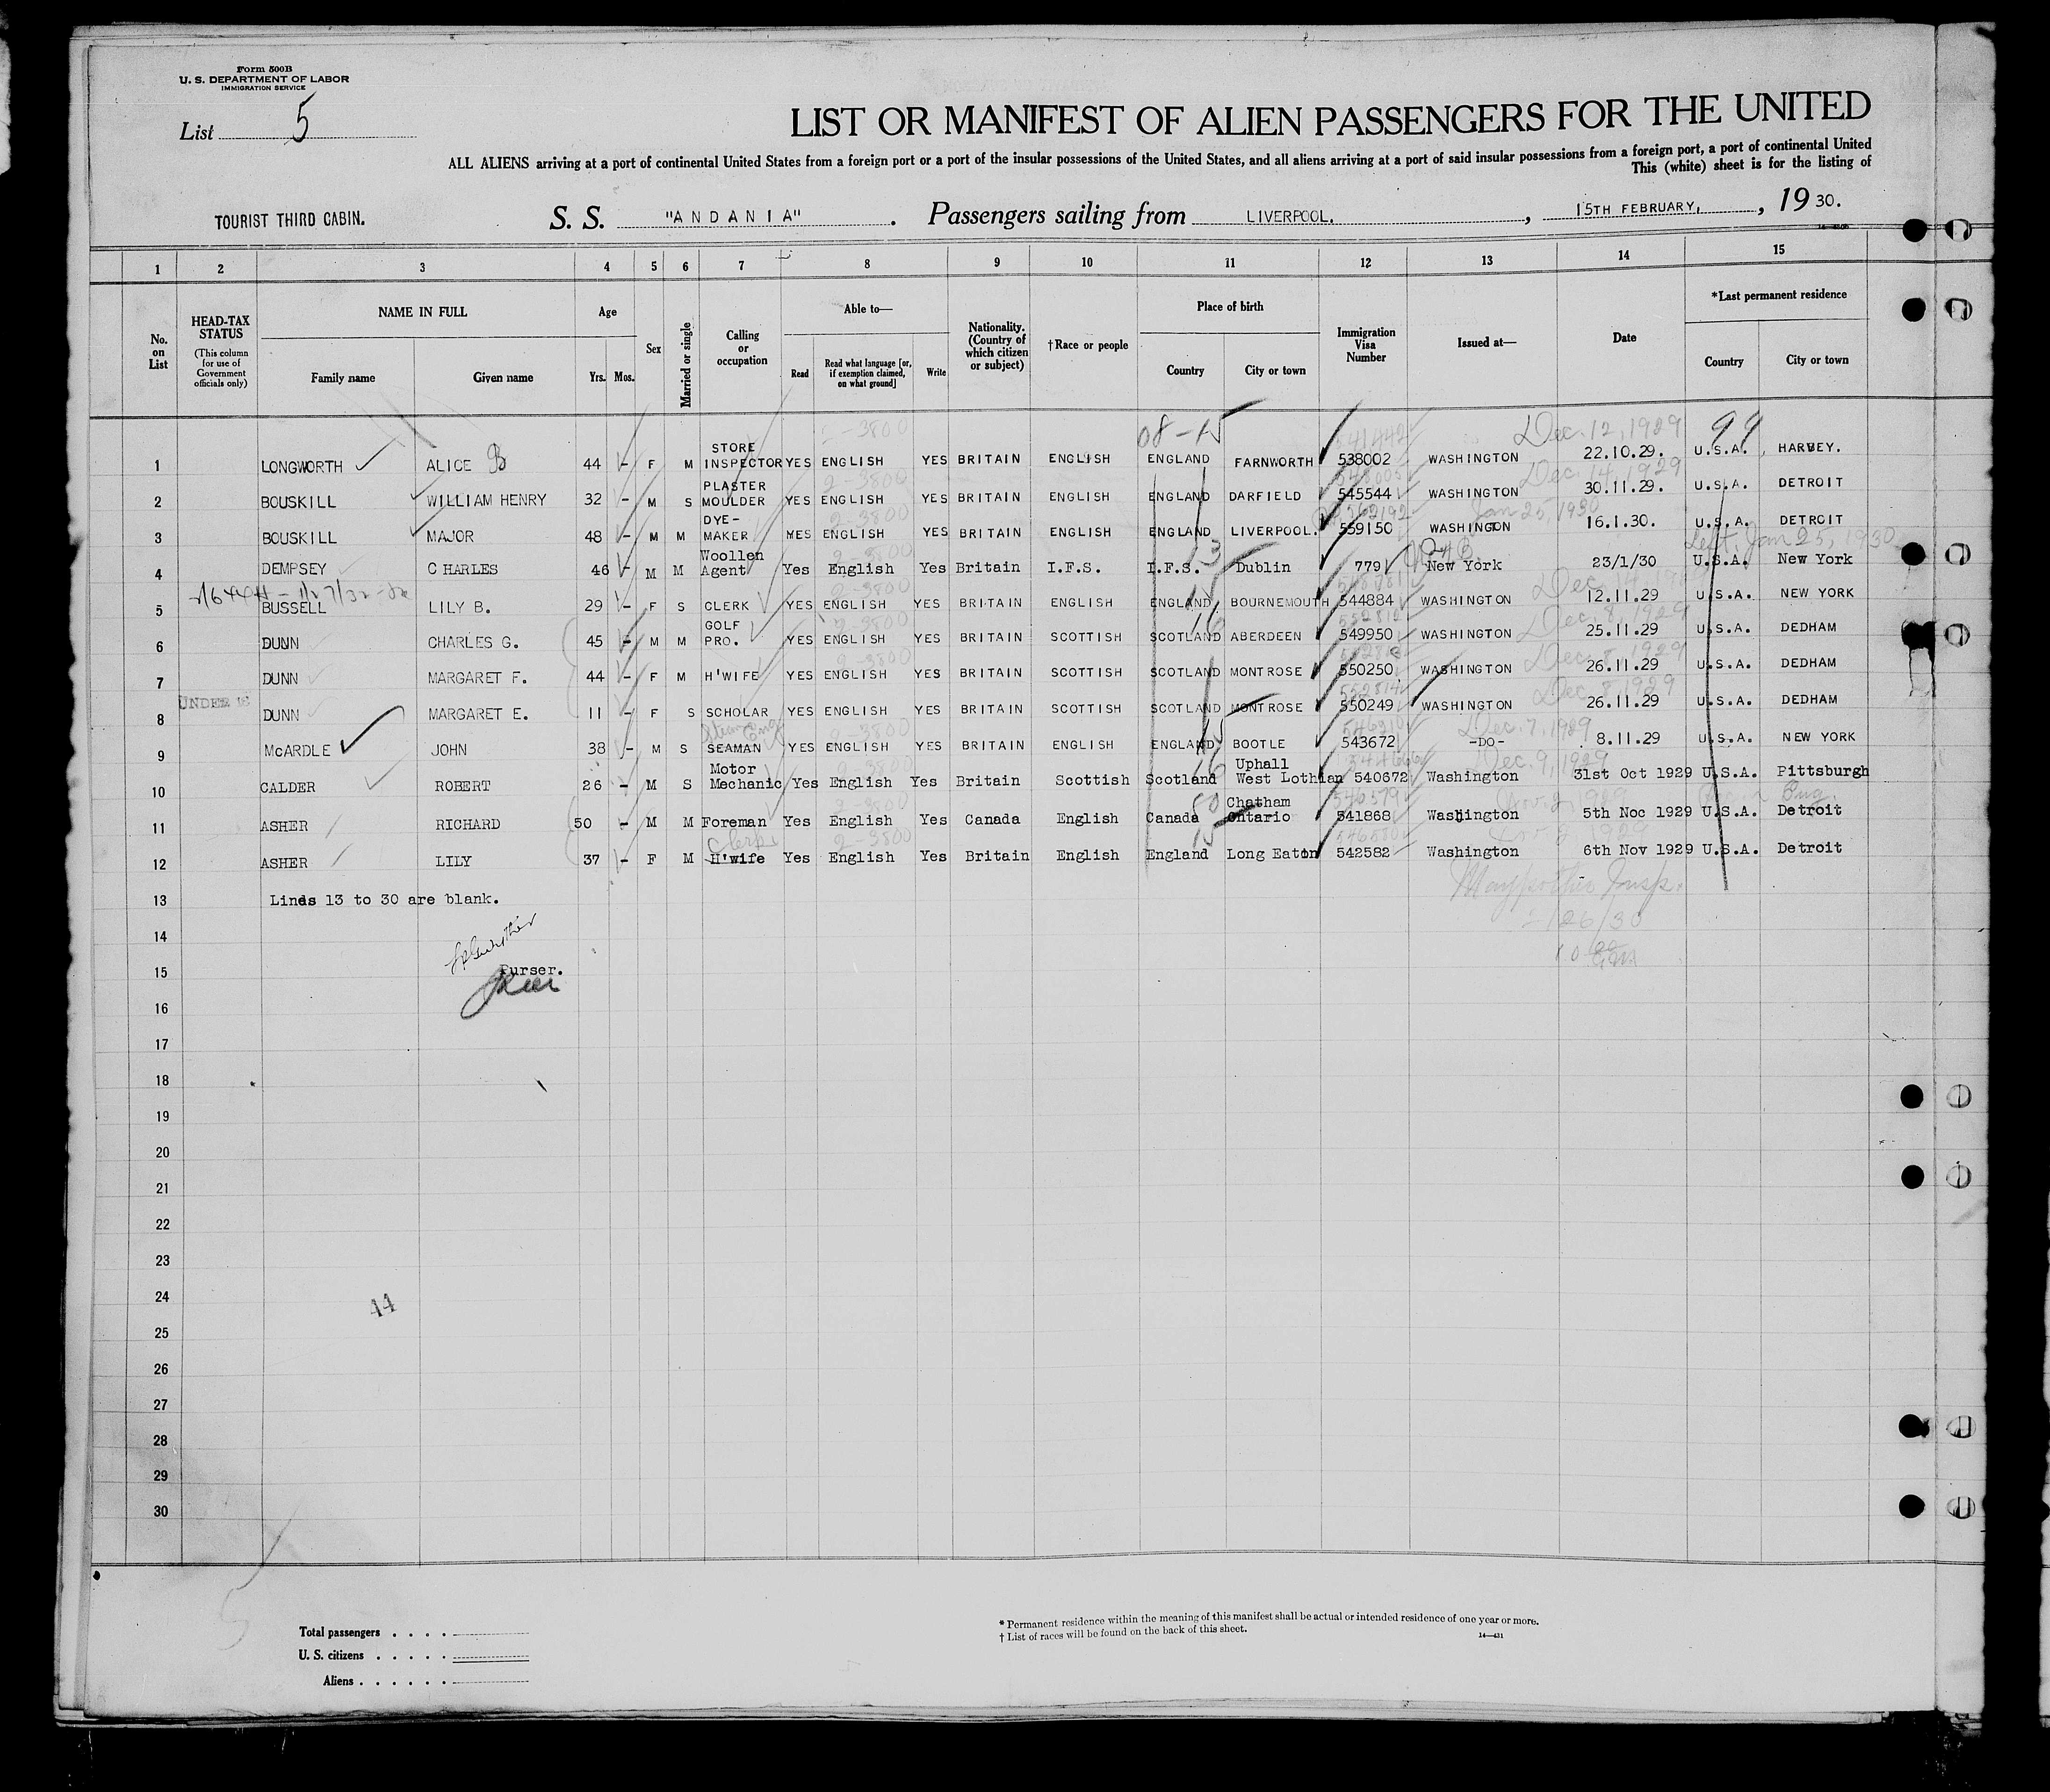 Form 500B
U. S. DEPARTMENT OF LABOR
IMMIGRATION SERVICE
List 5
LIST OR MANIFEST OF ALIEN PASSENGERS FOR THE UNITED
ALL ALIENS arriving at a port of continental United States from a foreign port or a port of the insular possessions of the United States, and all aliens arriving at a port of said insular possessions from a foreign port, a port of continental United
This (white) sheet is for the listing of
TOURIST THIRD CABIN. S. S. "ANDANIA". Passengers sailing from LIVERPOOL. , 15TH FEBRUARY, , 19 30.
1 2 3 4 5 6 7 8 9 10 11 12 13 14 15
No. on List
HEAD-TAX STATUS (This column for use of Government officials only)
NAME IN FULL
Family name Given name
Age
Yrs. Mos.
Sex
Married or single
Calling or occupation
Able to—
Read Read what language [or, if exemption claimed, on what ground] Write
Nationality. (Country of which citizen or subject)
†Race or people
Place of birth
Country City or town
Immigration Visa Number
Issued at—
Date
*Last permanent residence
Country City or town
08-15 Dec. 12, 1929 99
1 LONGWORTH ALICE B 44 - F M STORE INSPECTOR YES ENGLISH YES BRITAIN ENGLISH ENGLAND FARNWORTH 538002 WASHINGTON 22.10.29. U.S.A. HARVEY.
Dec. 14, 1929
2 BOUSKILL WILLIAM HENRY 32 - M S PLASTER MOULDER YES ENGLISH YES BRITAIN ENGLISH ENGLAND DARFIELD 545544 WASHINGTON 30.11.29. U.S.A. DETROIT
Jan 25, 1930
3 BOUSKILL MAJOR 48 - M M DYE-MAKER YES ENGLISH YES BRITAIN ENGLISH ENGLAND LIVERPOOL. 559150 WASHINGTON 16.1.30. U.S.A. DETROIT
Left Jan 25, 1930
4 DEMPSEY CHARLES 46 - M M Woollen Agent Yes English Yes Britain I.F.S. I.F.S. Dublin 779 New York 23/1/30 U.S.A. New York
5 BUSSELL LILY B. 29 - F S CLERK YES ENGLISH YES BRITAIN ENGLISH ENGLAND BOURNEMOUTH 544884 WASHINGTON 12.11.29 U.S.A. NEW YORK
Dec. 8, 1929
6 DUNN CHARLES G. 45 - M M GOLF PRO. YES ENGLISH YES BRITAIN SCOTTISH SCOTLAND ABERDEEN 549950 WASHINGTON 25.11.29 U.S.A. DEDHAM
Dec. 8, 1929
7 DUNN MARGARET F. 44 - F M H'WIFE YES ENGLISH YES BRITAIN SCOTTISH SCOTLAND MONTROSE 550250 WASHINGTON 26.11.29 U.S.A. DEDHAM
UNDER 16 Dec. 8, 1929
8 DUNN MARGARET E. 11 - F S SCHOLAR YES ENGLISH YES BRITAIN SCOTTISH SCOTLAND MONTROSE 550249 WASHINGTON 26.11.29 U.S.A. DEDHAM
Dec. 7, 1929
9 McARDLE JOHN 38 - M S SEAMAN YES ENGLISH YES BRITAIN ENGLISH ENGLAND BOOTLE 543672 -DO- 8.11.29 U.S.A. NEW YORK
Dec. 9, 1929
10 CALDER ROBERT 26 - M S Motor Mechanic Yes English Yes Britain Scottish Scotland Uphall West Lothian 540672 Washington 31st Oct 1929 U.S.A. Pittsburgh
11 ASHER RICHARD 50 - M M Foreman Yes English Yes Canada English Canada Chatham Ontario 541868 Washington 5th Noc 1929 U.S.A. Detroit
Clerk
12 ASHER LILY 37 - F M H'wife Yes English Yes Britain English England Long Eaton 542582 Washington 6th Nov 1929 U.S.A. Detroit
13 Lines 13 to 30 are blank.
2/26/30
14
15 Purser.
16
17
18
19
20
21
22
23
24
44
25
26
27
28
29
30
5
Total passengers
U. S. citizens
Aliens
* Permanent residence within the meaning of this manifest shall be actual or intended residence of one year or more.
† List of races will be found on the back of this sheet.
14—431